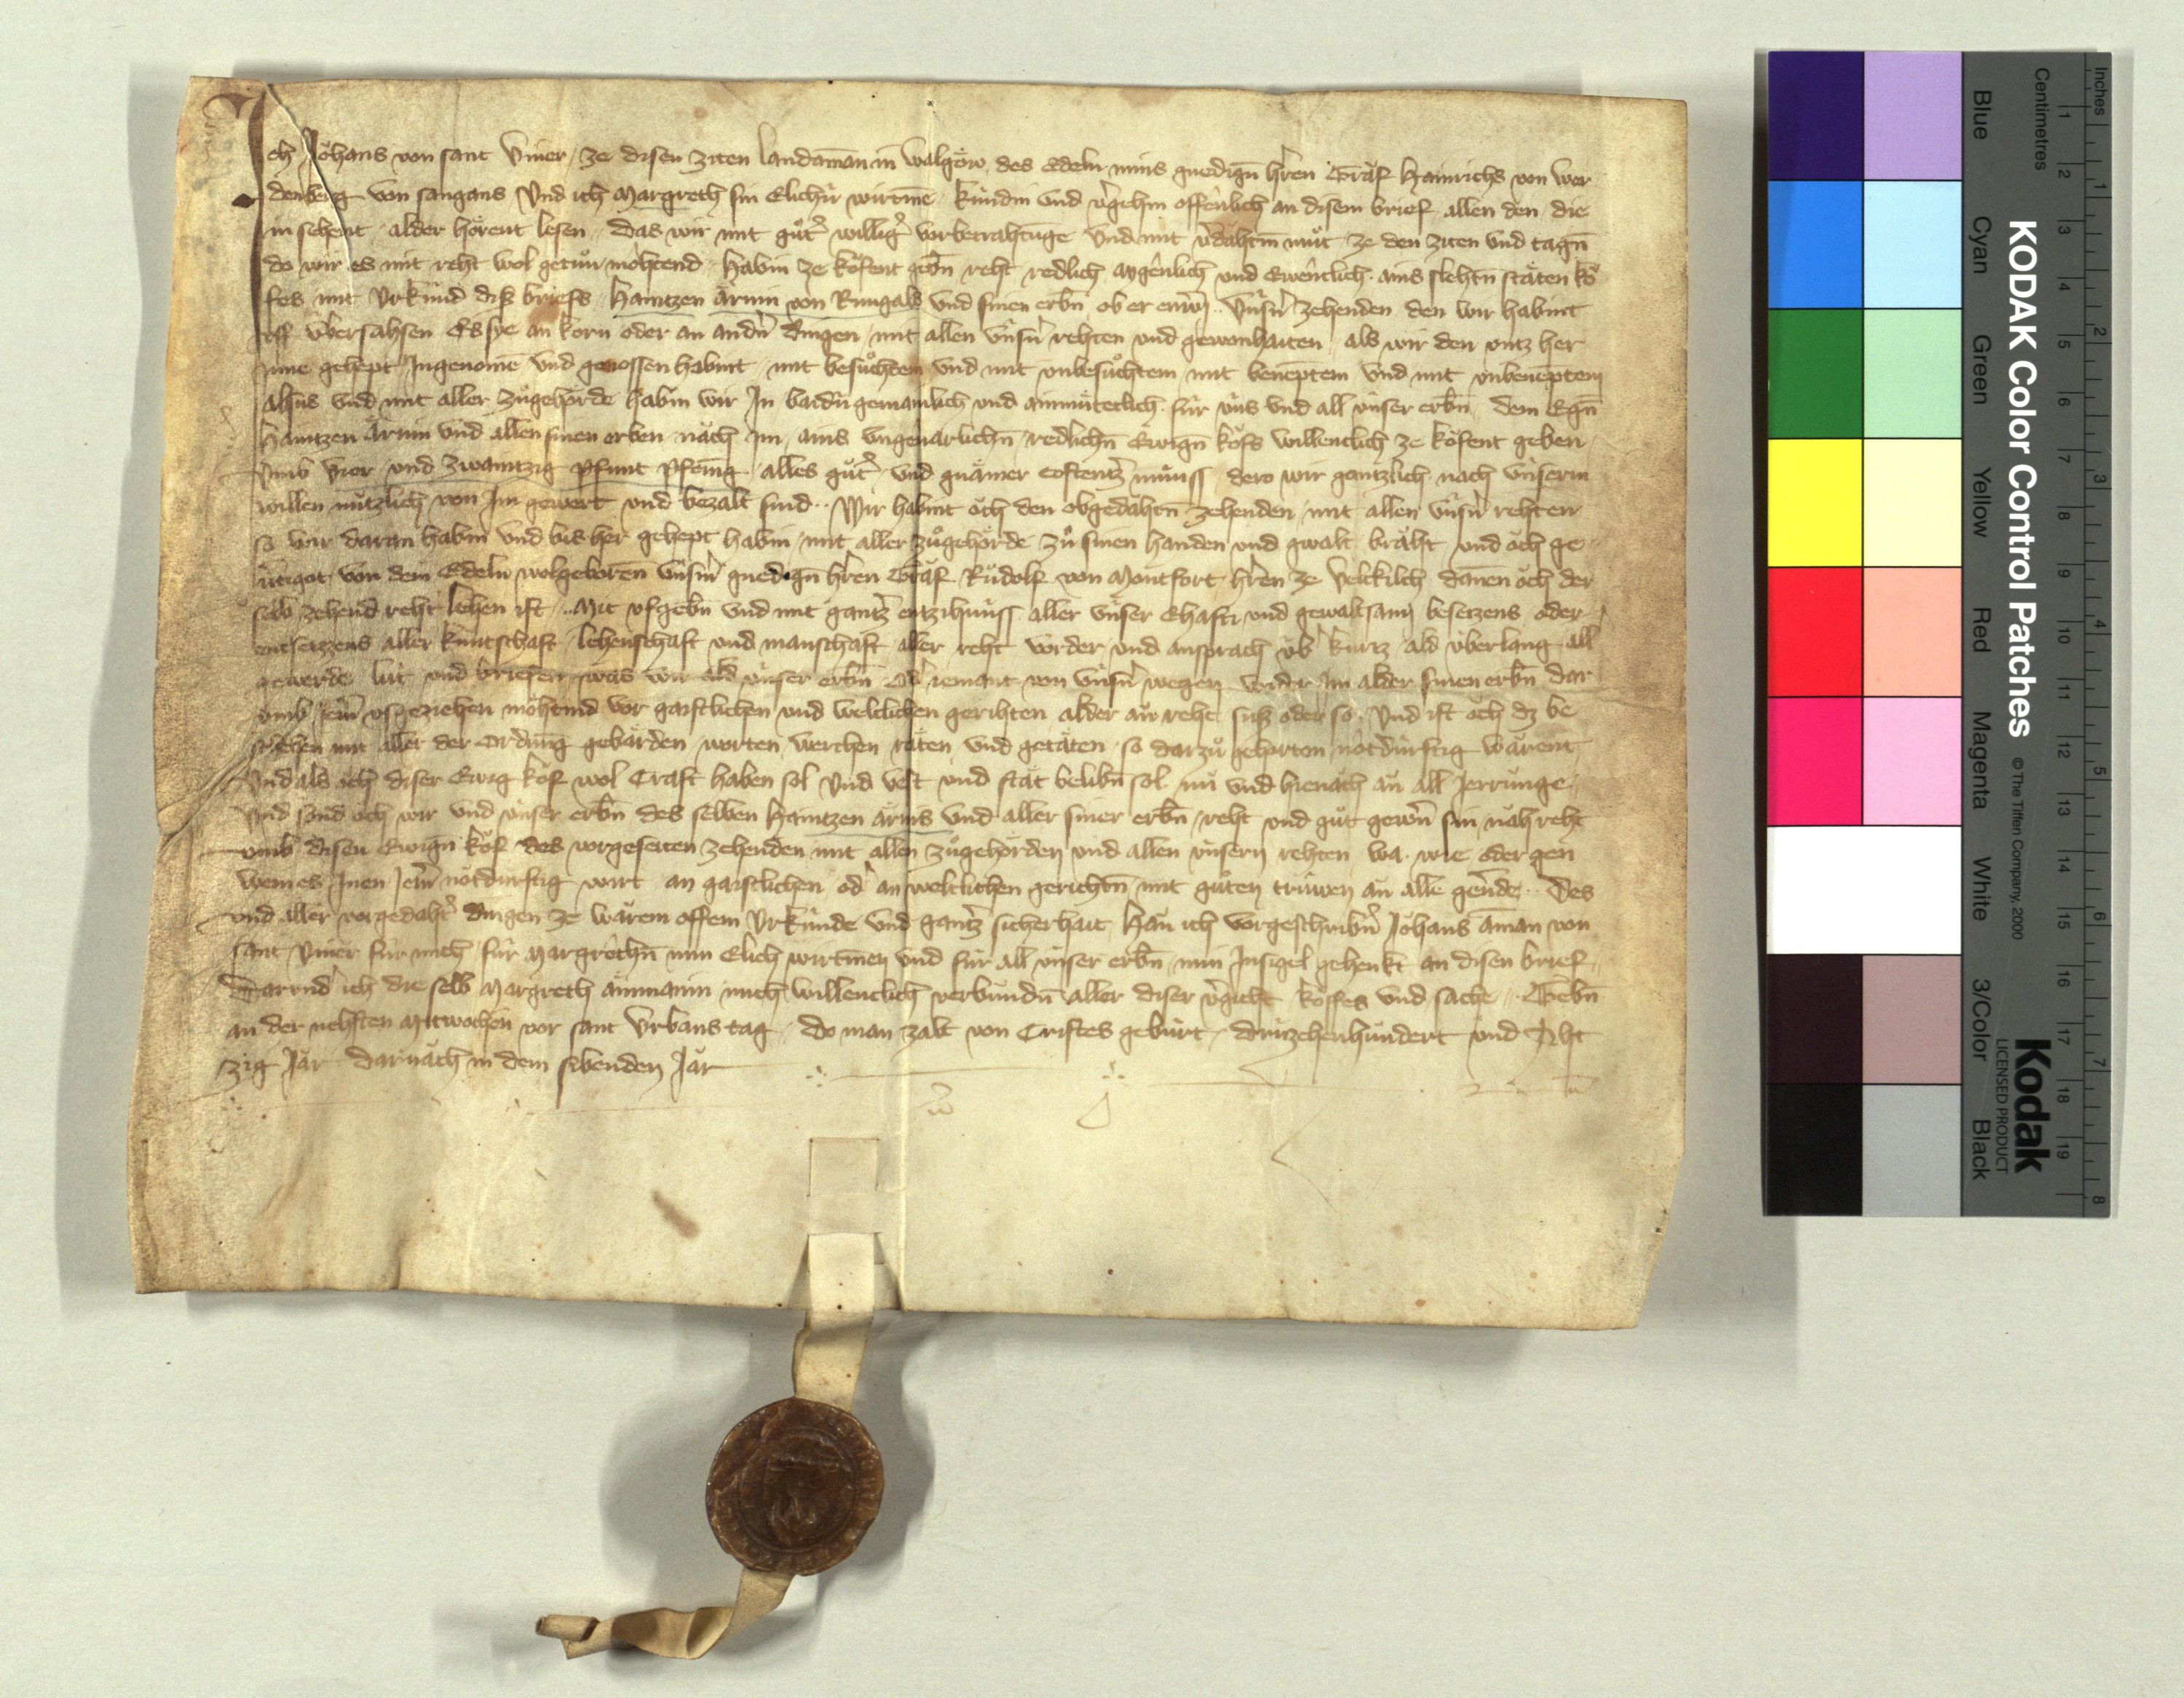 Ich Johans von sant Viner, ze disen ziten landaman̄ in Walgöw, des Edeln mins gnedign̄ hren Graf Hainrichs von Wer
denberg von sangans Vnd ich Margreth sin Elichu̍ wirtīne, ku̍ndin vnd v̾gehin offenlich an disem brief allen den, die
in sehent, alder hörent lesen, Das wir mit gu̍t̾ willig̾ vorbetrahtunge vnd mit v̾dahtem mu̍t, ze den ziten vnd tagn̄
do wir es mit reht wol getu̍n mohtend, Habin ze kofent gebn̄ reht redlich aygenlich vnd Ewenclich, ains slehtn̄ stäten ko
fes mit Vrku̍nd dis briefs, Haintzen Ärnin von Rungals vnd sinen erbn̄, ob er enwer, Vnsn̾ zehenden den wir habint
vff Übersahsen Es sye an korn oder an andn̾ dingen, mit allen vnsn̾ rehten vnd gewonhaiten, als wir den vntz her
inne gehept Ingenomē vnd genossen habint, mit besu̍chtem vnd mit vnbesu̍chtem, mit benēptem vnd mit vnbenēptem
alsus vnd mit aller zu̍gehörde habin wir In baidu̍ gemainlich vnd ainmu̍teclich fu̍r vns vnd all vnser erbn̄, dem Egn̄
Haintzen Ärnin vnd allen sinen erben nach im, ains vngeuarlichn̄ redlichn̄ Ewign̄ kofs willenclich ze kofent geben
Vmb Vier vnd zwaintzig Pfunt Pfēning alles gu̍t̾ vnd gnämer Costentz̾ mu̍nss, dero wir gäntzlich nach vnserm
willen nu̍tzlich von Im gewert vnd bezalt sind, Wir habint och den obgedahtn̄ zehenden, mit allen vnsn̾ rehten
so wir daran habin vnd bis her gehept habin, mit aller zu̍gehörde zu̍ sinen handen vnd gwalt, braht, vnd och ge
uertigot von dem Edeln wolgebornen vnsm̾ gnedign̄ hren Graf Ru̍dolf von Montfort hren ze Veltkilch dannen och der
selb zehend reht lehen ist, Mit vfgebn̄ vnd mit gantz̾ entzihnu̍ss aller vnser Ehafti vnd gewaltsami besetzens oder
entsetzens aller kuntschaft, lehenschaft vnd manschaft aller reht vorder vnd ansprach u̍b̾ kurtz ald u̍berlang all
gewerde lu̍t vnd briefen was wir ald vnser erbn̄ Od̾ iemant von vnsn̾ wegen wider Im alder sinen erbn̄ dar
vmb iem̾ vsgeziehen möhtind vor gaistlichen vnd weltlichen gerihten alder an̄ reht, sus oder so, Vnd ist och dz be
schehen mit aller der Ordnūng gebärden, worten werchen räten vnd getäten so darzu̍ gehorten notdurftig warent
Vnd als och diser Ewig kof wol Craft haben sol Vnd vest vnd stät belibn̄ sol nu vnd hienach an̄ all Jerrunge,
Vnd sond och wir vnd vnser erbn̄ des selben Haintzen Ärnis vnd aller siner erbn̄, reht vnd gu̍t gewern̾ sin, nah reht
vmb disen Ewign̄ kof des vorgeseiten zehenden mit allen zu̍gehörden vnd allen vnsern rehten, wa, wie, oder gen
wem es Inen Jem̾ notdurftig wirt an gaistlichen od̾ an weltlichen gerichtn̄ mit gu̍ten tru̍wen an̄ alle geu̾de, Des
vnd aller vorgedaht̾ dingen ze warem offem Vrku̍nde vnd gantz̾ sicherhait, Han ich vorgeschribn̾ Johans āman von
sant Viner fu̍r mich fu̍r Margrethn̄ min Elich wirtīnen vnd fu̍r all vnser erbn̄ min Insigel gehenkt an disen brief,
Darvnd̾ ich die selb Margreth ämmanin mich willenclich verbundn̄ aller diser v̾giht koffes vnd sache, Gebn̄
an der nehsten Mitwochen vor sant Vrbans tag, do man zalt von Cristes geburt, dru̍zehenhundert vnd Aht
zig Jar darnach in dem sibenden Jar
KODAK Color Control Patches
© The Tiffen Company, 2000
Kodak
LICENSED PRODUCT
Blue Cyan Green Yellow Red Magenta White 3/Color Black
Inches 1 2 3 4 5 6 7 8
Centimetres 1 2 3 4 5 6 7 8 9 10 11 12 13 14 15 16 17 18 19